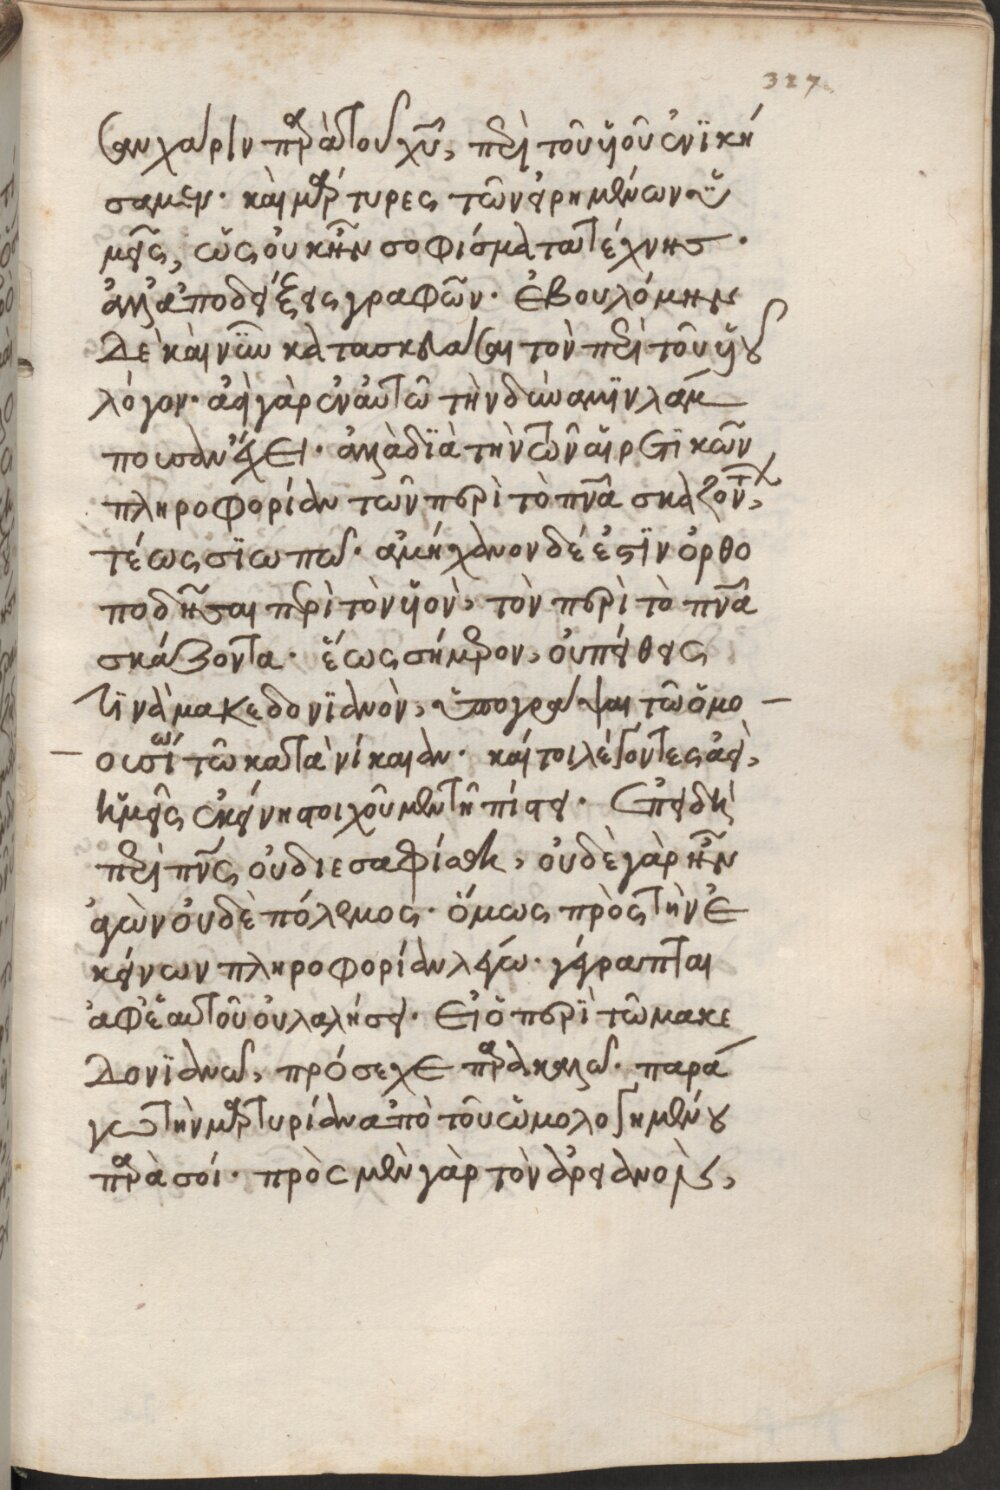 327
σαν χάριν παρὰ τοῦ χυ, περὶ τοῦ υἱοῦ ἐνϊκή
σαμεν. καὶ μάρτυρες τῶν εἰρημένων αὐ
ὑμεῖς, ὡς οὐκ ἦν σοφίσματα τέχνης.
ἀλλ' ἀποδείξεις γραφῶν. ἐβουλόμην
δὲ καὶ νῦν κατασκευάσαι τὸν περὶ τοῦ υἱοῦ
λόγον. ἀεὶ γὰρ ἐν αὐτῶ τὴν δύναμϊν λάμ
πουσαν ἔχει. ἀλλὰ δϊὰ τὴν τῶν αἱρετϊκῶν
πληροφορίαν τῶν περὶ τὸ πνα σκαζόντ,
τέως σϊωπῶ. ἀμήχανον δέ ἐστϊν ὀρθο
ποδῆσαι περὶ τὸν υἱὸν, τὸν περὶ τὸ πνα
σκάζοντα. ἕως σήμερον, οὐ πείθεις
τϊνὰ μακεδονϊανὸν, ὑπογράψαι τῶ ὁμο
ουσίω τῶ κατὰ νίκαιαν. καίτοι λέγοντες ἀεὶ,
ἡμεῖς ἐκείνη στοιχοῦμεν τῆ πίστει. ἐπειδὴ
περὶ πνς οὐ διεσαφίσθη, οὐδὲ γὰρ ἦν
ἀγὼν οὐδὲ πόλεμος. ὅμως πρὸς τὴν ἐ
κείνων πληροφορίαν λέγω. γέγραπται
ἀφ' ἑαυτοῦ οὐ λαλήσει. εἰ ὁ περϊ τῶ μακε
δονϊανῶ, πρόσεχε παρακαλῶ. παρά
γω τὴν μαρτυρίαν ἀπὸ τοῦ ὡμολογημένου
παρὰ σοί. πρὸς μὲν γὰρ τὸν ἀρειανοὺς,